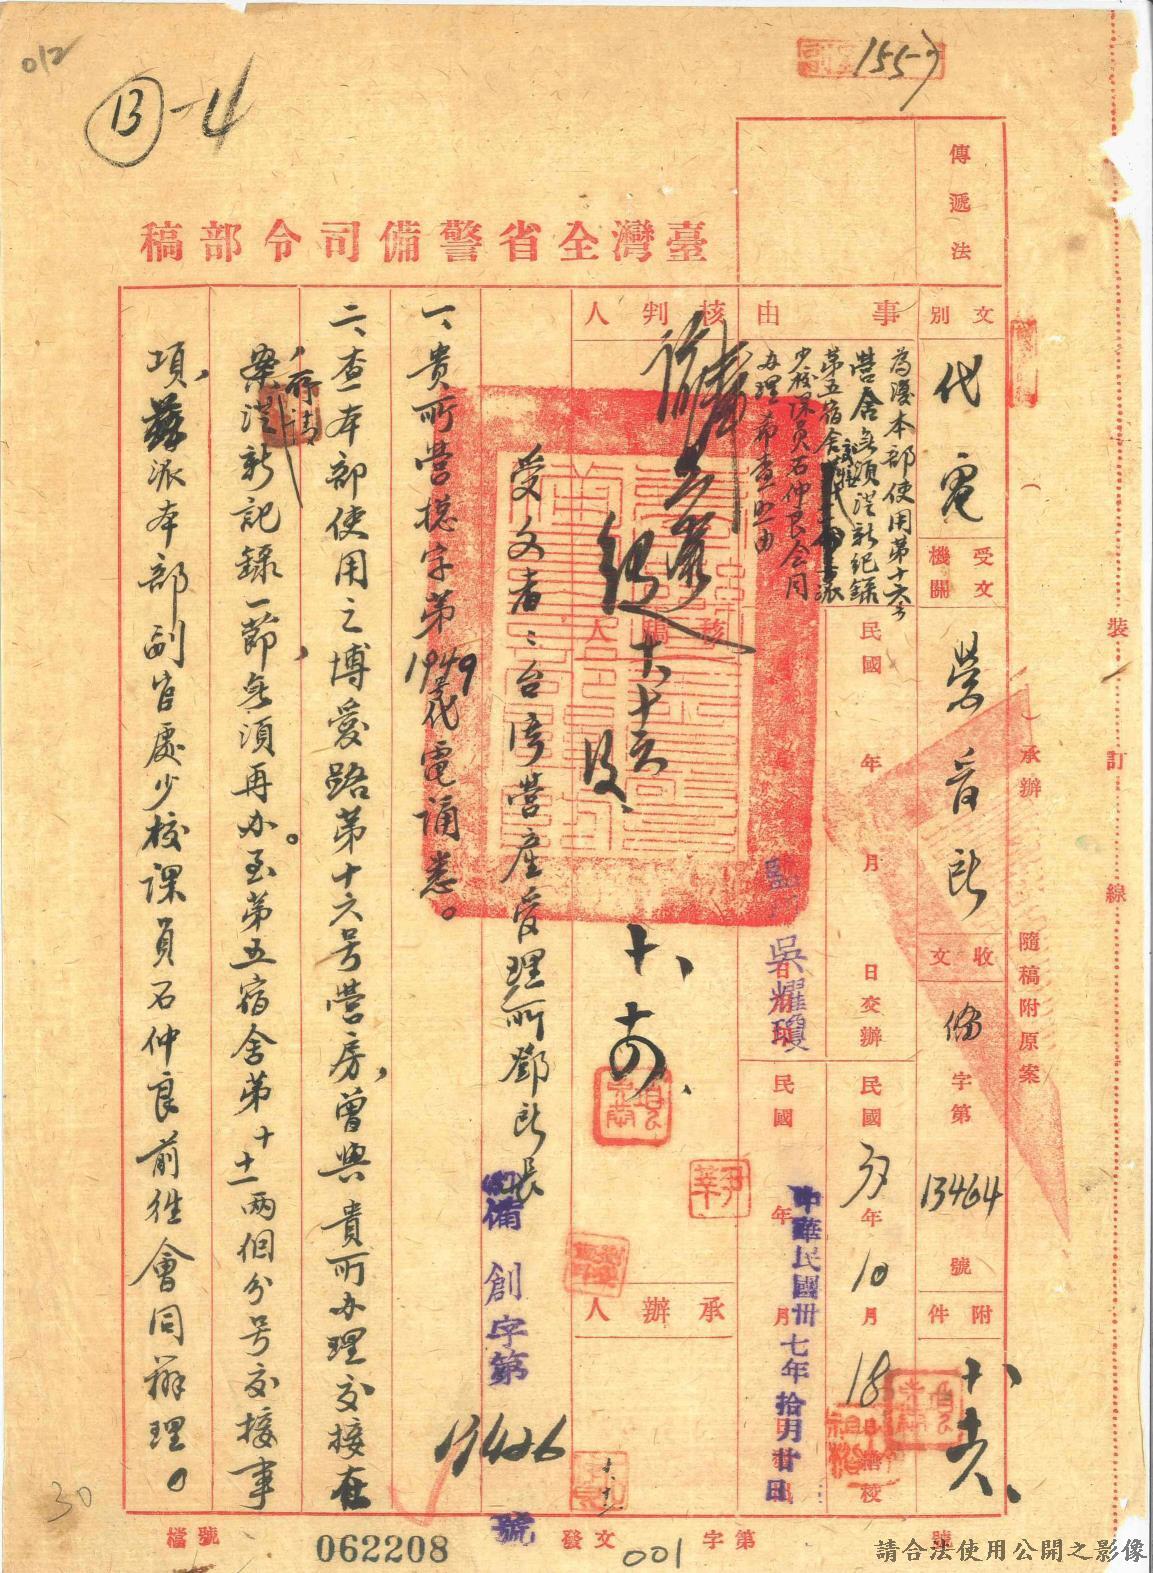 012
13-4
1557
傳遞法
臺灣全省警備司令部稿
文別
代電
受文機關
營管所
收文
備字第13464號
附件
事由
為復本部使用第十六号
營舍無須從新紀錄
第五宿舍
派
少校課員石仲良会同
办理希查照由
核判人
核稿人
承辦人
民國年月日交辦
民國37年10月18日繕校
民國年月
中華民國卅七年拾月廿日
監印
吳耀瓊
受文者：台湾營產管理所鄧所長
備創字第13426號
一、貴所營總字第1949号代電誦悉。
二、查本部使用之博愛路第十六号營房，曾與貴所办理交接在
案，所請從新記錄一節，無須再办。至第五宿舍第十十一兩個分号交接事
項，茲派本部副官處少校課員石仲良前往會同辦理。
裝訂線
（承辦）隨稿附原案
檔號
062208
發文
字第
號
001
30
請合法使用公開之影像